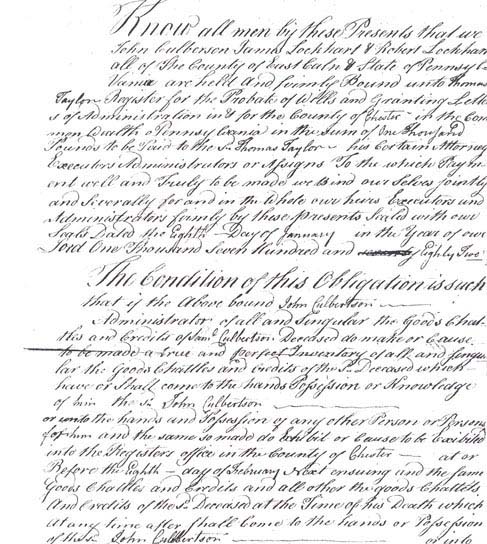 Know all men by these Presents that we
John Culberson James Lockhart & Robert Lockhart
all of The County of East Caln & State of Pennsyl
Vania are held And firmly Bound unto Thomas
Taylor Register for the Probate of Wills and Granting Letter
s of Administration in & for the County of Chester in the Com
mon Wealth o Pennsylvania in the Sum of One Thousand
Pounds to be Paid to the Sd. Thomas Taylor his Certain Attorney
Executors Administrators or Assigns To the which Paym
ent well and Truly to be made we Bind our Selves Jointly
and Severally for and in the Whole our heirs Executors and
Administrators firmly by these presents Sealed with our
Seals Dated the Eighth Day of January in the Year of our
Lord One Thousand Seven Hundred and Eighty Two
The Condition of this Obligation is such
that if the Above bound John Culbertson
Administrator of all and Singular the Goods Chat
tles and Credits of Saml. Culbertson Deceased do make or Cause
to be made a true and perfect Inventory of all and Singu
lar the Goods Chattles and Credits of the Sd. Deceased which
have or Shall come to the hands Possession or Knowledge
of him the Sd. John Culbertson
or unto the hands and Possession of any other Person or Persons
for him and the same so made do Exhibit or Cause to be Exhibited
into the Registers office in the County of Chester at or
Before the Eighth day of February Next ensuing and the same
Goods Chattles and Credits and all other the goods Chattels
And Credits of the Sd. Deceased at the Time of his Death which
at any time after Shall Come to the hands or Possession
of the Sd. John Culbertson or into